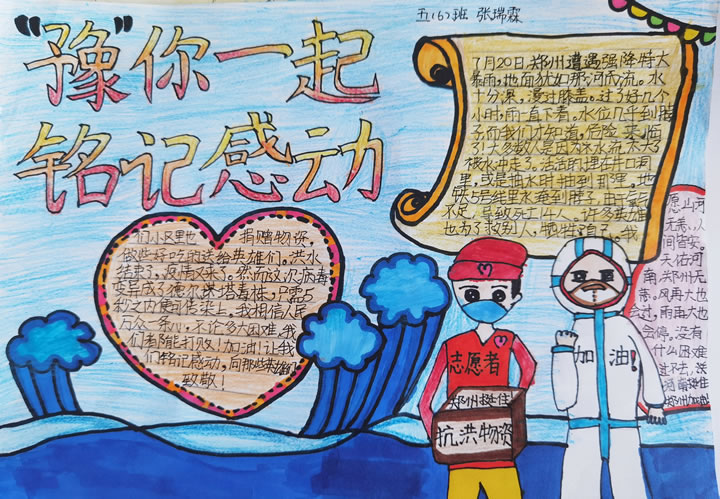 五(6)班 张瑞霖
"豫"你一起
铭记感动
7月20日,郑州遭遇强降特大
暴雨,地面犹如那河底流。水
十分深,漫过膝盖。过了好几个
小时,雨一直下着。水位几乎到脖
子而我们才知道,危险来临
了!大多数人是因为水流太大了
被水冲走了。活活的埋在井口
里,或是抽水时抽到
铁5号线里水淹到脖子,由于氧气
不足,导致死亡14人。许多英雄
也为了救别人,牺牲了自己。我
们小区里也捐赠物资,
做些好吃的送给英雄们,洪水
结束了,疫情又来了。然而这次病毒
变异成了德尔塔毒株,只需5
秒之内便可传染上。我相信人民
万众一条心,不论多大困难,我
们都能打败!加油!让我
们铭记感动,向那些英雄们
致敬!
愿山河
无恙,人
间皆安。
天佑河
南,郑州无
恙。风再大也
会过,雨再大也
会停,没有
什么困难
过不去,沃
挺住
郑州加油
志愿者
郑州挺住
抗洪物资
加油!